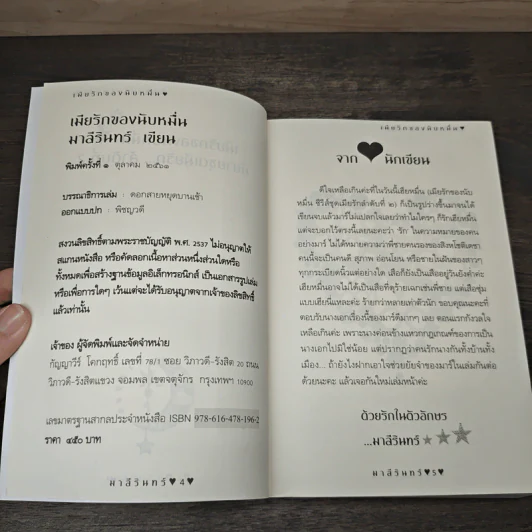 เมียรักของนับหมื่น♥
เมียรักของนับหมื่น
มาลีรินทร์ เขียน
พิมพ์ครั้งที่ ๑ ตุลาคม ๒๕๖๑
บรรณาธิการเล่ม : ดอกสายหยุดบานเช้า
ออกแบบปก : พิชญวดี
สงวนลิขสิทธิ์ตามพระราชบัญญัติ พ.ศ. 2537 ไม่อนุญาตให้
สแกนหนังสือ หรือคัดลอกเนื้อหาส่วนหนึ่งส่วนใดหรือ
ทั้งหมดเพื่อสร้างฐานข้อมูลอิเล็กทรอนิกส์ เป็นเอกสารรูปเล่ม
หรือเพื่อการใดๆ เว้นแต่จะได้รับอนุญาตจากเจ้าของลิขสิทธิ์
แล้วเท่านั้น
เจ้าของ ผู้จัดพิมพ์และจัดจำหน่าย
กัญญาวีร์ โตกฤทธิ์ เลขที่ 78/1 ซอย วิภาวดี-รังสิต 20 ถนน
วิภาวดี-รังสิตแขวง จอมพล เขตจตุจักร กรุงเทพฯ 10900
เลขมาตรฐานสากลประจำหนังสือ ISBN 978-616-478-196-2
ราคา ๔๕๐ บาท
มาลีรินทร์♥4♥
เมียรักของนับหมื่น♥
จาก ♥ นักเขียน
ดีใจเหลือเกินค่ะที่ในวันนี้เฮียหมื่น (เมียรักของนับ
หมื่น ซีรีส์ชุดเมียรักลำดับที่ ๒) ก็เป็นรูปร่างขึ้นมาจนได้
เขียนจบแล้วมาร์ไม่แปลกใจเลยว่าทำไมใครๆ ก็รักเฮียหมื่น
แต่จะบอกไว้ตรงนี้เลยนะคะว่า 'รัก' ในความหมายของคน
อย่างมาร์ ไม่ได้หมายความว่าพี่ชายคนรองของสิงหโชติเดชา
คนนี้จะเป็นคนดี สุภาพ อ่อนโยน หรือชายในฝันของสาวๆ
ทุกกระเบียดนิ้วแต่อย่างใด เสือก็ยังเป็นเสืออยู่วันยังค่ำค่ะ
เฮียหมื่นอาจไม่ได้เป็นเสือที่ดุร้ายฉกเช่นพี่ชาย แต่เสือซุ่ม
แบบเฮียนี่แหละค่ะ ร้ายกว่าหลายเท่าตัวนัก ขอบคุณนะคะที่
ตอบรับนางเอกเรื่องนี้ของมาร์ดีมากๆ เลย ตอนแรกกังวลใจ
เหลือเกินค่ะ เพราะนางค่อนข้างแหวกกฎเกณฑ์ของการเป็น
นางเอกไปมิใช่น้อย แต่ปรากฏว่าคนรักนางกันทั้งบ้านทั้ง
เมือง... ถ้ายังไงฝากเอาใจช่วยยัยจ๋าของมาร์ในเล่มกันต่อ
ด้วยนะคะ แล้วเจอกันใหม่เล่มหน้าค่ะ
ด้วยรักในตัวอักษร
...มาลีรินทร์
มาลีรินทร์♥5♥